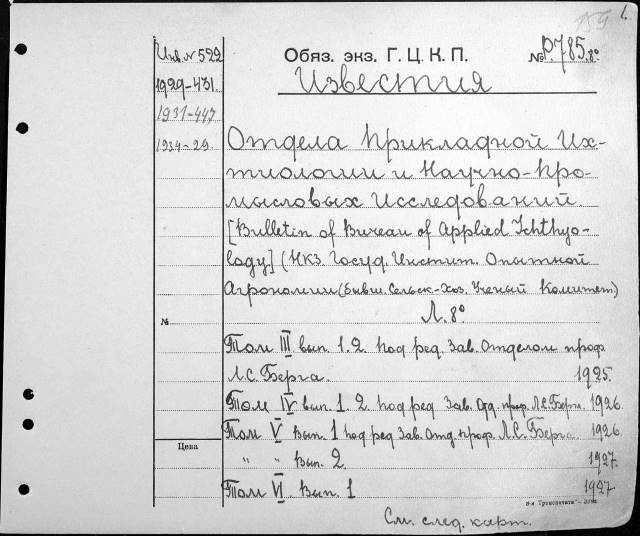 159 1.
Инв. № 522 Обяз. экз. Г. Ц. К. П. № Р.785. 8°
1929-431. Известия
1931-447
1934-29. Отдела Прикладной Их-
тиологии и Научно-про-
мысловых Исследований.
[Bulletin of Bureau of Applied Ichthyo-
logy] (НКЗ. Госуд. Инстит. Опытной
Агрономии (бывш. Сельск-Хоз. Ученый Комитет)
№ Л. 8°
Том III вып. 1. 2. под ред. Зав. Отделом проф.
Л.С. Берга. 1925.
Том IV вып. 1. 2 под ред Зав. Отд. проф. Л.С. Берга. 1926.
Том V вып. 1 под ред Зав. Отд. проф. Л.С. Берга. 1926
Цена " " Вып. 2 1927.
Том VI Вып. 1 1927
См. след. карт.